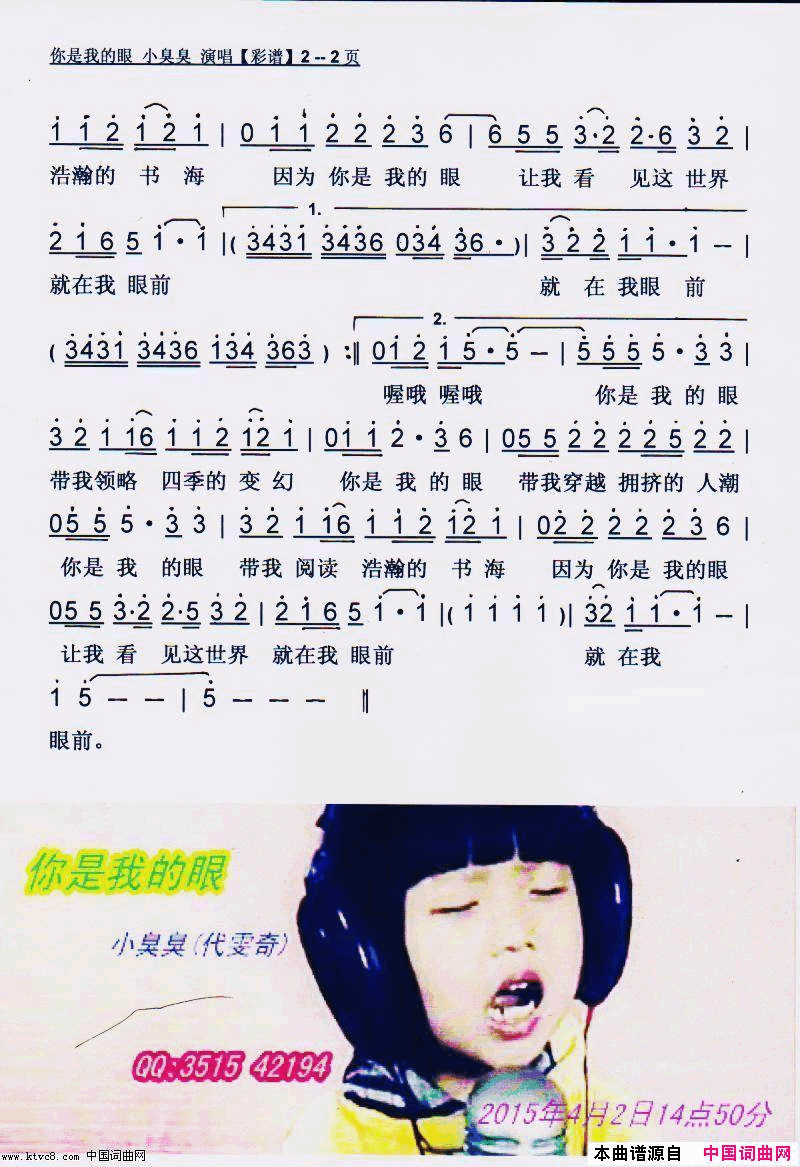 你是我的眼 小臭臭 演唱【彩谱】2 -- 2 页
1 1 2 1 2 1 | 0 1 1 2 2 2 3 6 | 6 5 5 3·2 2·6 3 2 |
浩瀚的 书 海 因为 你是 我的 眼 让我 看 见这 世界
1.
2 1 6 5 1 · 1 |( 3431 3436 034 36· )| 3 2 2 1 1· 1 — |
就在我 眼前 就 在 我眼 前
2.
( 3431 3436 134 363 ) :‖ 0 1 2 1 5 · 5 — | 5 5 5 5 · 3 3 |
喔哦 喔哦 你是 我 的 眼
3 2 1 16 1 1 2 12 1 | 0 1 1 2 · 3 6 | 0 5 5 2 2 2 2 5 2 2 |
带我领略 四季的 变 幻 你是 我 的 眼 带我穿越 拥挤的 人潮
0 5 5 5 · 3 3 | 3 2 1 16 1 1 2 12 1 | 0 2 2 2 2 2 3 6 |
你是 我 的眼 带我 阅读 浩瀚的 书 海 因为 你是 我的眼
0 5 5 3·2 2·5 3 2 | 2 1 6 5 1 · 1 |( 1 1 1 1 )| 32 1 1 · 1 — |
让我 看 见这世界 就在我 眼前 就 在我
1 5 — — | 5 — — — ‖
眼前。
你是我的眼
小臭臭(代雯奇)
QQ:3515 42194
2015年4月2日14点50分
www.ktvc8.com 中国词曲网
本曲谱源自 中国词曲网